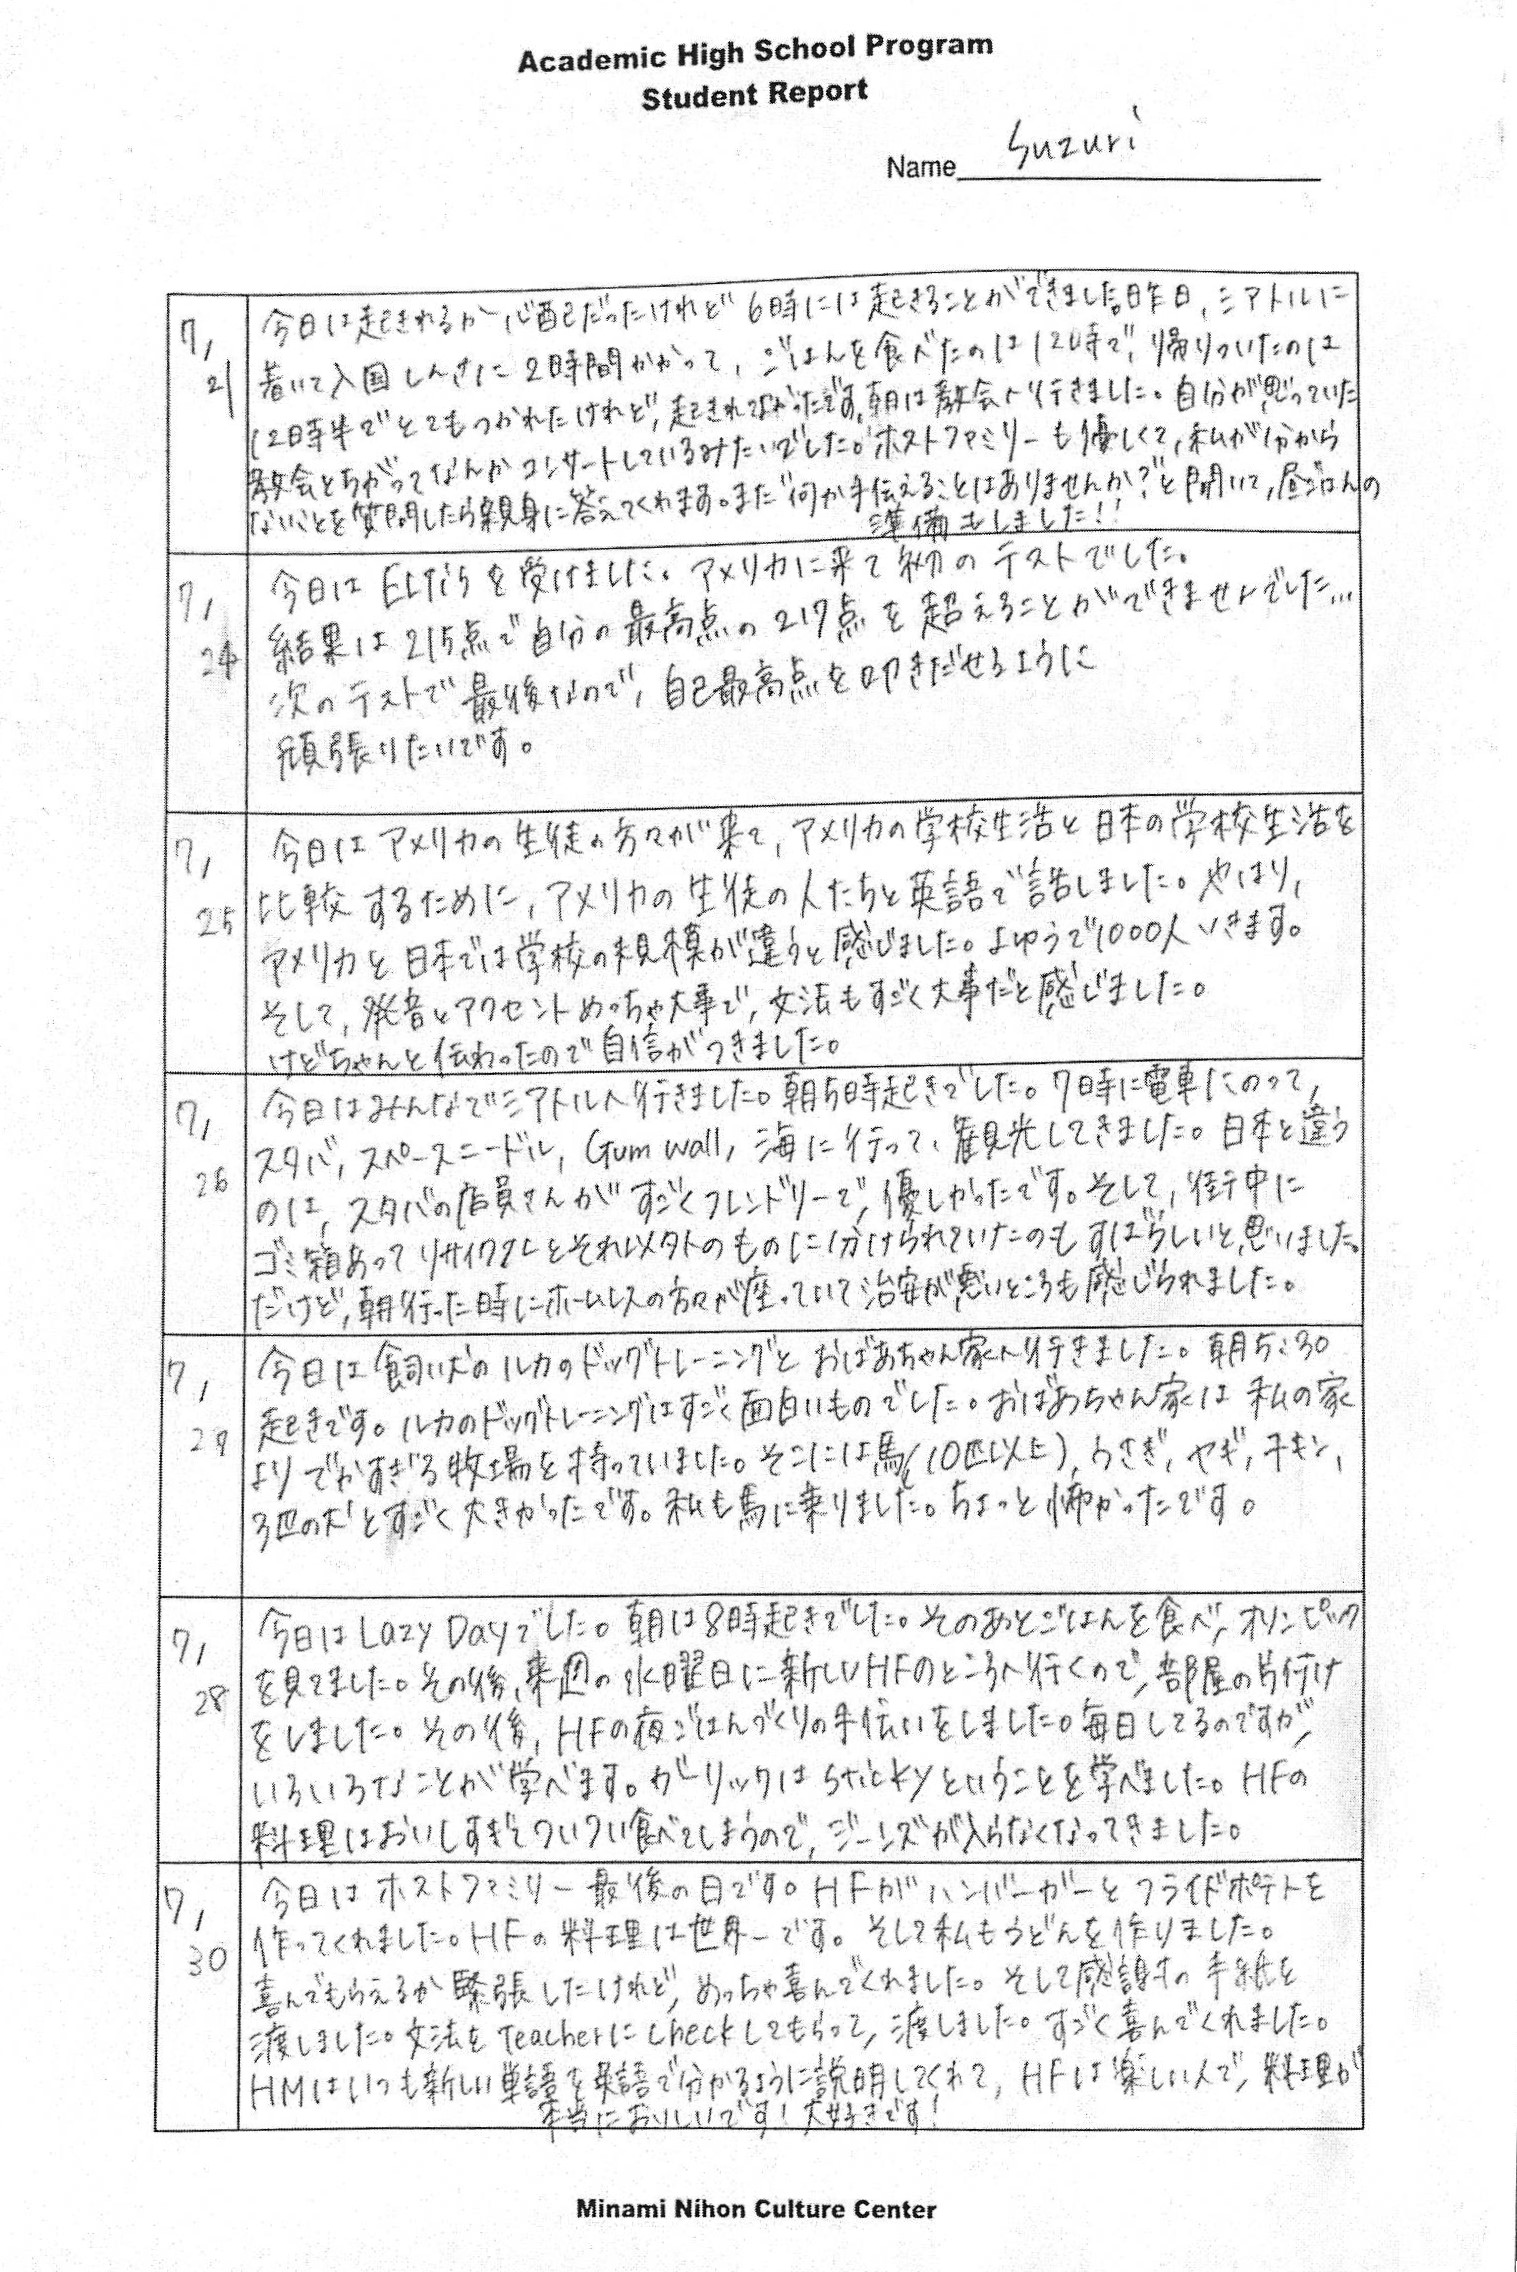 Academic High School Program
Student Report
Name Suzuri
7, 21
今日は起きれるか心配だったけれど6時には起きることができました。昨日、シアトルに
着いて入国しんさに2時間かかって、ごはんを食べたのは12時で、帰りついたのは
12時半でとてもつかれたけれど、起きれてよかったです。朝は教会へ行きました。自分が思っていた
教会とちがってなんかコンサートしているみたいでした。ホストファミリーも優しくて、私が分から
ないことを質問したら親身に答えてくれます。また"何か手伝えることはありませんか?"と聞いて、昼ごはんの
準備もしました!!
7, 24
今日はEltisを受けました。アメリカに来て初のテストでした。
結果は215点で自分の最高点の217点を超えることができませんでした...
次のテストで最後なので、自己最高点を叩きだせるように
頑張りたいです。
7, 25
今日はアメリカの生徒の方々が来て、アメリカの学校生活と日本の学校生活を
比較するために、アメリカの生徒の人たちと英語で話しました。やはり、
アメリカと日本では学校の規模が違うと感じました。よゆうで1000人いきます。
そして、発音とアクセントめっちゃ大事で、文法もすごく大事だと感じました。
けどちゃんと伝わったので自信がつきました。
7, 26
今日はみんなでシアトルへ行きました。朝5時起きでした。7時に電車にのって、
スタバ、スペースニードル、Gum wall、海に行って、観光してきました。日本と違う
のは、スタバの店員さんがすごくフレンドリーで、優しかったです。そして、街中に
ゴミ箱あってリサイクルとそれ以外のものに分けられていたのもすばらしいと思いました。
だけど、朝行った時にホームレスの方々が座っていて治安が悪いところも感じられました。
7, 27
今日は飼い犬のルカのドッグトレーニングとおばあちゃん家へ行きました。朝5:30
起きです。ルカのドッグトレーニングはすごく面白いものでした。おばあちゃん家は私の家
よりでかすぎる牧場を持っていました。そこには馬(10匹以上)、うさぎ、ヤギ、チキン、
3匹の犬とすごく大きかったです。私も馬に乗りました。ちょっと怖かったです。
7, 28
今日はLazy Dayでした。朝は8時起きでした。そのあとごはんを食べ、オリンピック
を見てました。その後、来週の水曜日に新しいHFのところへ行くので、部屋の片付け
をしました。その後、HFの夜ごはんづくりの手伝いをしました。毎日してるのですが、
いろいろなことが学べます。ガーリックはstickyということを学べました。HFの
料理はおいしすぎてついつい食べてしまうので、ジーンズが入らなくなってきました。
7, 30
今日はホストファミリー最後の日です。HFがハンバーガーとフライドポテトを
作ってくれました。HFの料理は世界一です。そして私もうどんを作りました。
喜んでもらえるか緊張したけれど、めっちゃ喜んでくれました。そして感謝の手紙を
渡しました。文法をTeacherにcheckしてもらって、渡しました。すごく喜んでくれました。
HMはいつも新しい単語を英語で分かるように説明してくれて、HFは楽しい人で、料理が
本当においしいです!大好きです!
Minami Nihon Culture Center